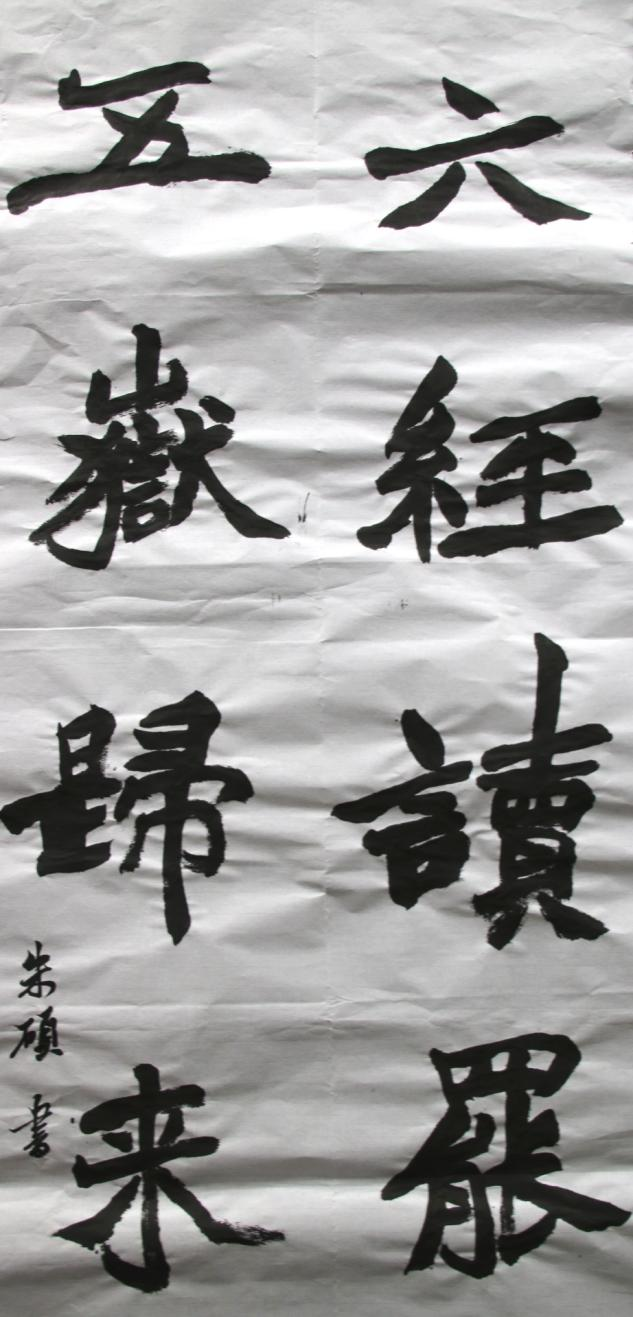 六經讀罷
五嶽歸来
朱碩書